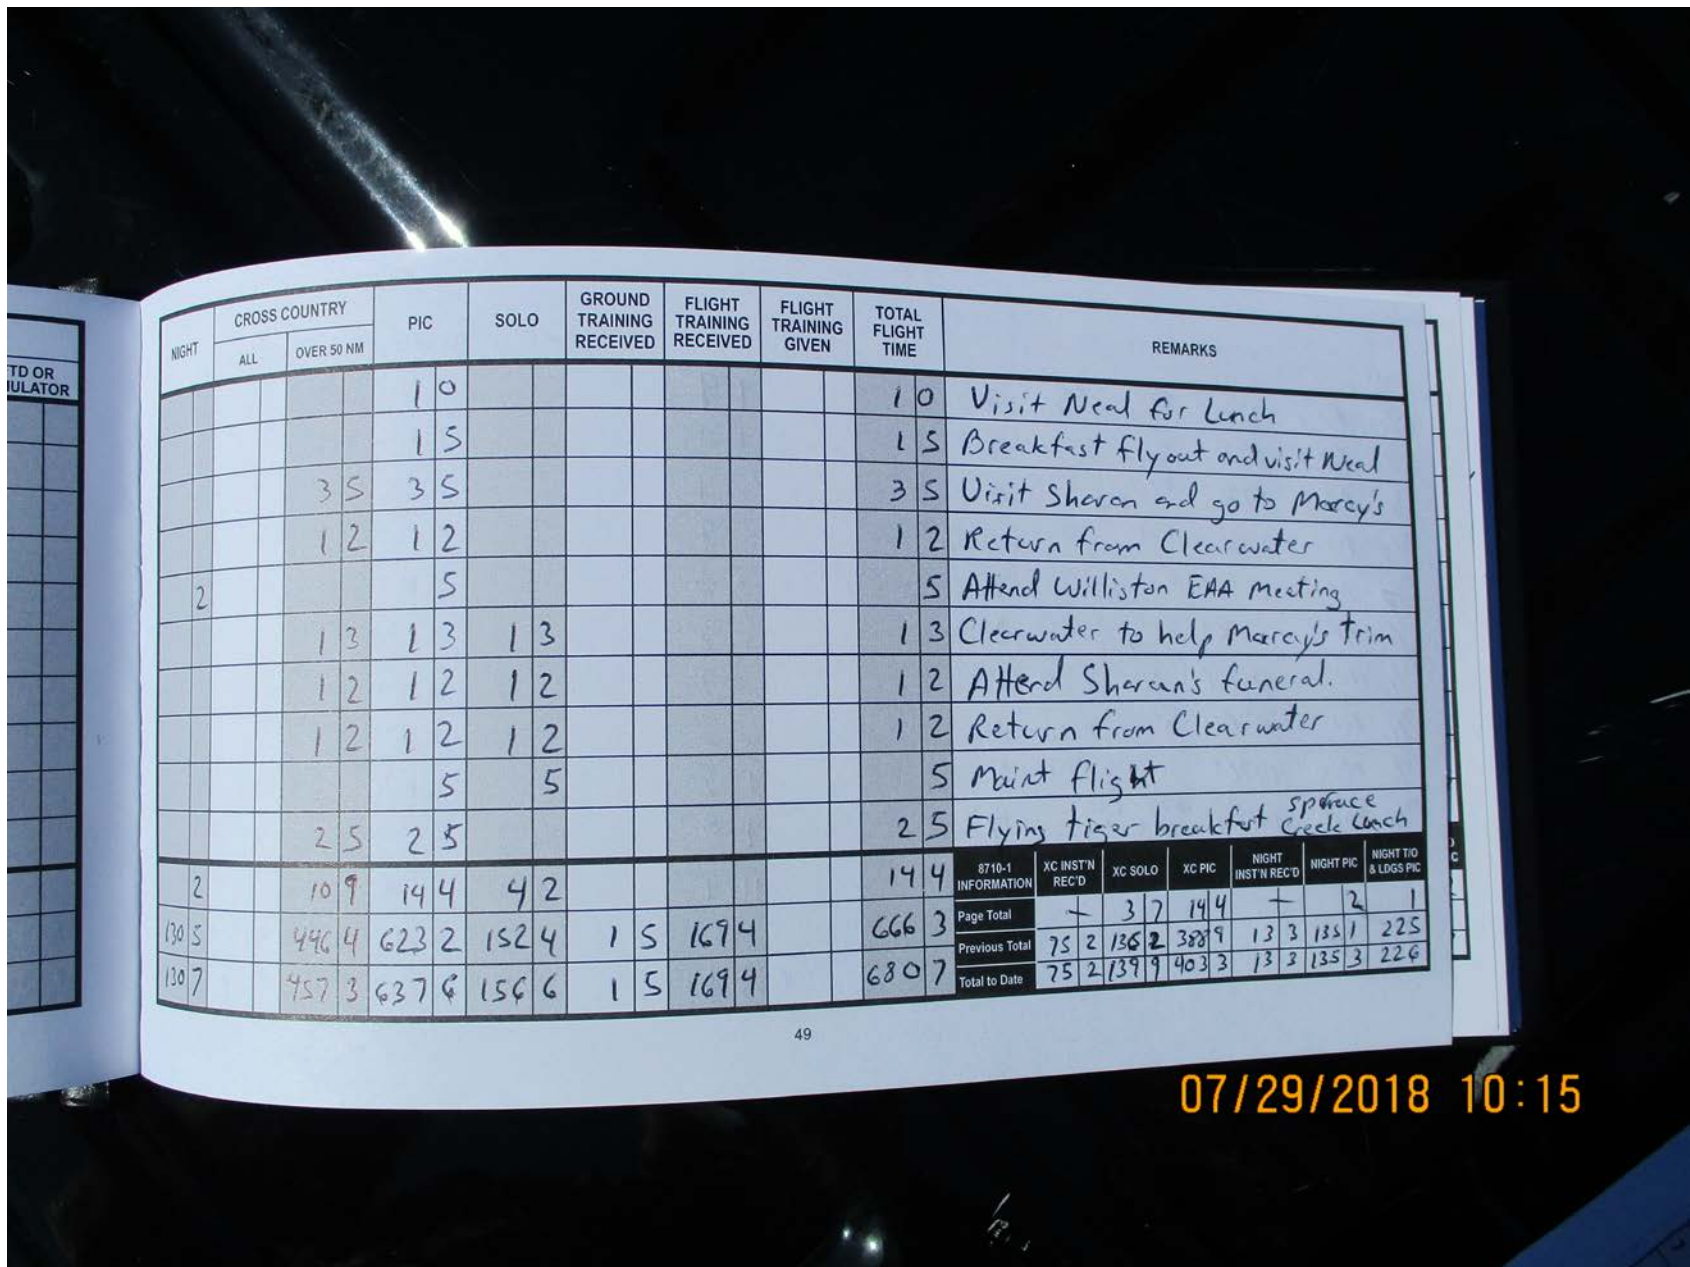 TD OR
ULATOR
NIGHT
CROSS COUNTRY
ALL
OVER 50 NM
PIC
SOLO
GROUND TRAINING RECEIVED
FLIGHT TRAINING RECEIVED
FLIGHT TRAINING GIVEN
TOTAL FLIGHT TIME
REMARKS
1 0 1 0 Visit Neal for Lunch
1 5 1 5 Breakfast fly out and visit Neal
3 5 3 5 3 5 Visit Sharon and go to Marcy's
1 2 1 2 1 2 Return from Clearwater
2 5 5 Attend Williston EAA Meeting
1 3 1 3 1 3 1 3 Clearwater to help Marcy's Trim
1 2 1 2 1 2 1 2 Attend Sharon's funeral.
1 2 1 2 1 2 1 2 Return from Clearwater
5 5 5 Maint flight
2 5 2 5 2 5 Flying tiger breakfast Spruce Creek Lunch
2 10 9 14 4 4 2 14 4
130 5 446 4 623 2 152 4 1 5 169 4 666 3
130 7 457 3 637 6 156 6 1 5 169 4 680 7
8710-1 INFORMATION
XC INST'N REC'D
XC SOLO
XC PIC
NIGHT INST'N REC'D
NIGHT PIC
NIGHT T/O & LDGS PIC
Page Total — 3 7 14 4 — 2 1
Previous Total 75 2 136 2 388 9 13 3 135 1 225
Total to Date 75 2 139 9 403 3 13 3 135 3 226
49
07/29/2018 10:15